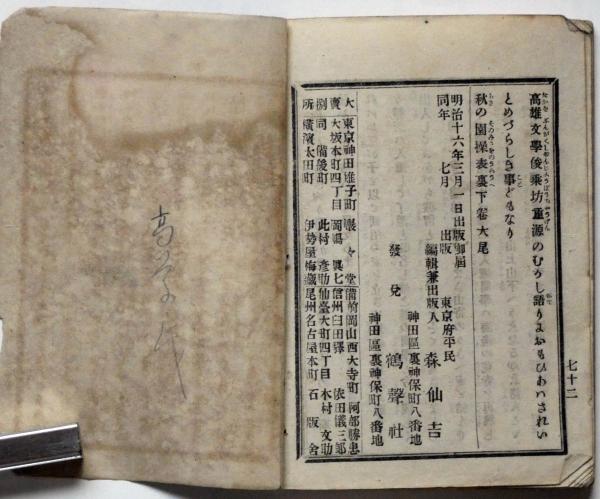 高雄文學俊乗坊重源のむかし語りよおもひあわされい
とめづらしき事どもなり
秋の園操表裏下卷大尾
明治十六年三月一日出版御届
同年 七月 出版
東京府平民
編輯兼出版人 森仙吉
神田區裏神保町八番地
發兌 鶴聲社
神田區裏神保町八番地
大賣捌所
東京神田雉子町 巖々堂
大坂本町四丁目 岡嶋真七
同 備後町 此村彦助
横濱太田町 伊勢屋梅藏
備前岡山西大寺町 阿部勝忠
信州臼田驛 依田儀三郎
仙臺大町四丁目 木村文助
尾州名古屋本町 石版舍
七十二